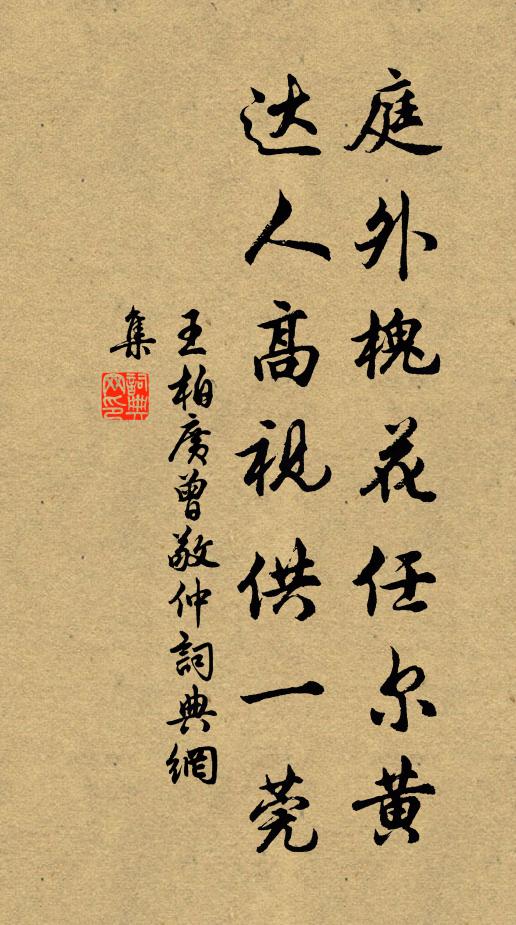 庭外槐花任尔黄
达人高视供一莞
王柏廣曾敬仲詞典網
集
詞典
网印